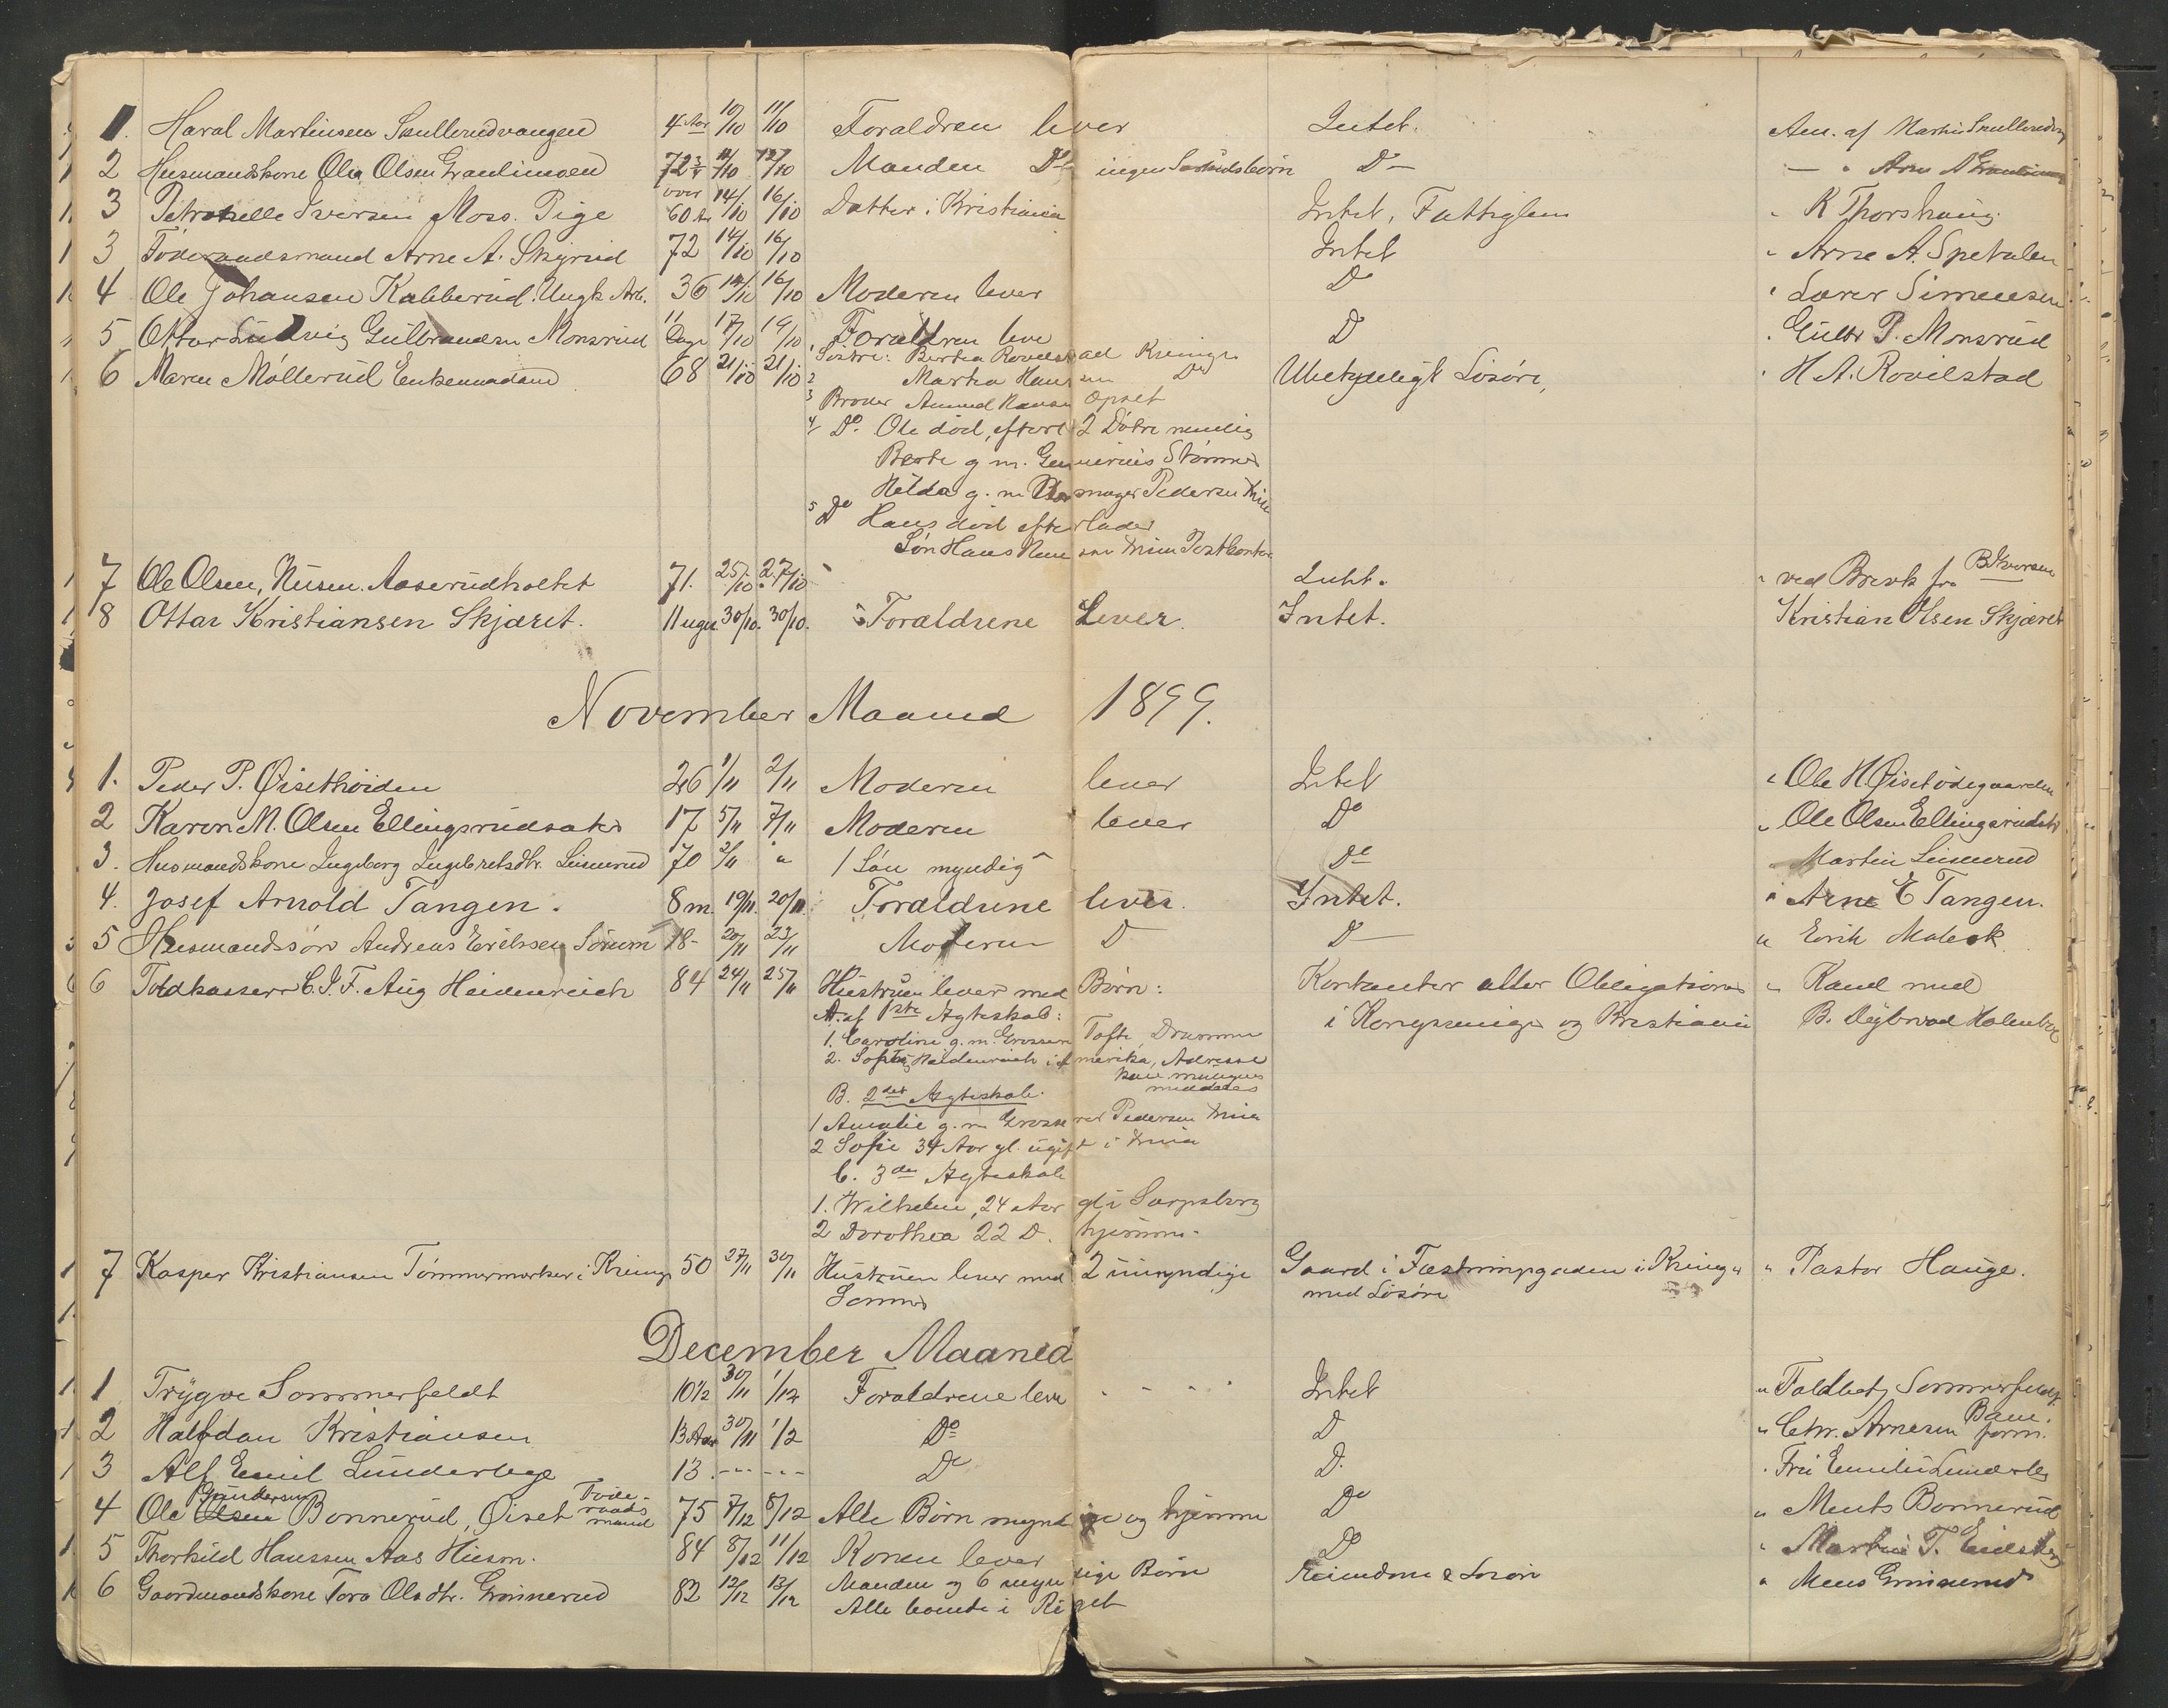 1. Haral Martinsen Snullerudvangen 4 Aar 10/10 11/10 Foraldren lever Intet. Anm. af Martin
2 Husmandskone Olia Olsen 72 3/4 11/10 Manden Do ingen Do — "
3 Petronelle Iversen Moss. Pige over 60 Aar 14/10 16/10 Datter i Kristiania Intet, Fattiglem " K Thorshaug
3 Föderaadsmand Arne A. Skyrud 72 14/10 16/10 Intet " Arne A. Spetalen
4 Ole Johansen Kabberud. Ungk. Arb. 36 14/10 16/10 Moderen lever Do " Lærer Simensen
5 Ottar Ludvig Gulbrandsen Monsrud 11 Dage 17/10 19/10 Foraldren leve D " Gulbr P. Monsrud
6 Maren Möllerud Enkemadam 68 21/10 21/10 1 Söstre: Berthea Rovelstad Ubetydeligt Lösöre, " H A. Rovilstad
2 Martha Hansen Do
3 Broder Amund Hansen Opset
4 Do. Ole död, efterl 2 Dötre nemlig
Berte g m. Störmer
Hilda g. m Pedersen Kria
5 Do Hans död efterlader
Sön Hans Kria Postkontor
7 Ole Olsen, Husm. Aaserudholtet 71. 25/10 27/10 Intet. " ved Brevk fra B. Iversen
8 Ottar Kristiansen Skjæret. 11 uger. 30/10. 30/10. Foraldrene Lever. Intet. Kristian Olsen Skjæret
November Maaned 1899.
1. Peder P. Øisethöiden 26 1/11 2/11 Moderen lever Intet " Ole H. Øisetödegaarden
2 Karen M. Olsen Ellingsrudsater 17 5/11 7/11 Moderen lever Do " Ole Olsen Ellingsrudstr
3. Husmandskone Ingeborg Ingebretsdtr. Linnerud 70 2/11 " 1 Sön myndig Do " Martin Linnerud
4. Josef Arnold Tangen. 8 m. 19/11. 20/11. Foraldrene lever. Intet. " Arne E Tangen.
5 Husmandssön Andreas Eriksen Sörum 18- 20/11 23/11 Moderen D D — " Erik
6 Toldkasserer C. J. F. Aug Heidenreich 84 24/11 25/11 Hustruen lever med Börn: Kontanter eller Obligationer " Kand med
A. af 1ste Ægteskab: i Kongsvinger og Kristiania B. Dybwad Holmboe
1. Caroline g. m. Grosserer Tofte, Drammen
2. Heidenreich i Amerika, Adresse
kan
meddeles
B. 2det Ægteskab.
1 Amalie g. m Grosserer Pedersen Kria
2 Sofie 34 Aar gl. ugift i Kria
C. 3die Ægteskab
1. Wilhelm, 24 Aar gl i Sarpsborg
2 Dorothea 22 D. hjemme.
7 Kasper Kristiansen Tömmermerker i Kvinger 50 27/11 30/11 Hustruen lever med 2 umyndige Gaard i Fæstningsgaden i Kving " " Pastor Hauge.
Sönner med Lösöre
December Maaned
1 Trygve Sommerfeldt 10 1/2 30/11 1/12 Foraldrene leve - - - - Intet " Toldbetj Sommerfeldt
2 Halfdan Kristiansen 13 Aar 30/11 1/12 Do D " Chr. Arnesen Bane form.
3 Alf Emil Lunderbye 13. - - - - - - Do D. " Fru Emilie
4 Ole Olsen Gundersen Bonnerud, Øiset Föde-raads mand 75 7/12 8/12 Alle Börn myndige og hjemme Do " Ments Bonnerud
5 Thorkild Hanssen Aas Husm. 84 8/12 11/12 Konen lever Do " Martin T.
6 Gaardmandskone Tora Olsdtr. Grönnerud 82 12/12 13/12 Manden og 6 myndige Börn Eiendom & Lösöre " Mens Grönnerud
Alle boende i Riget